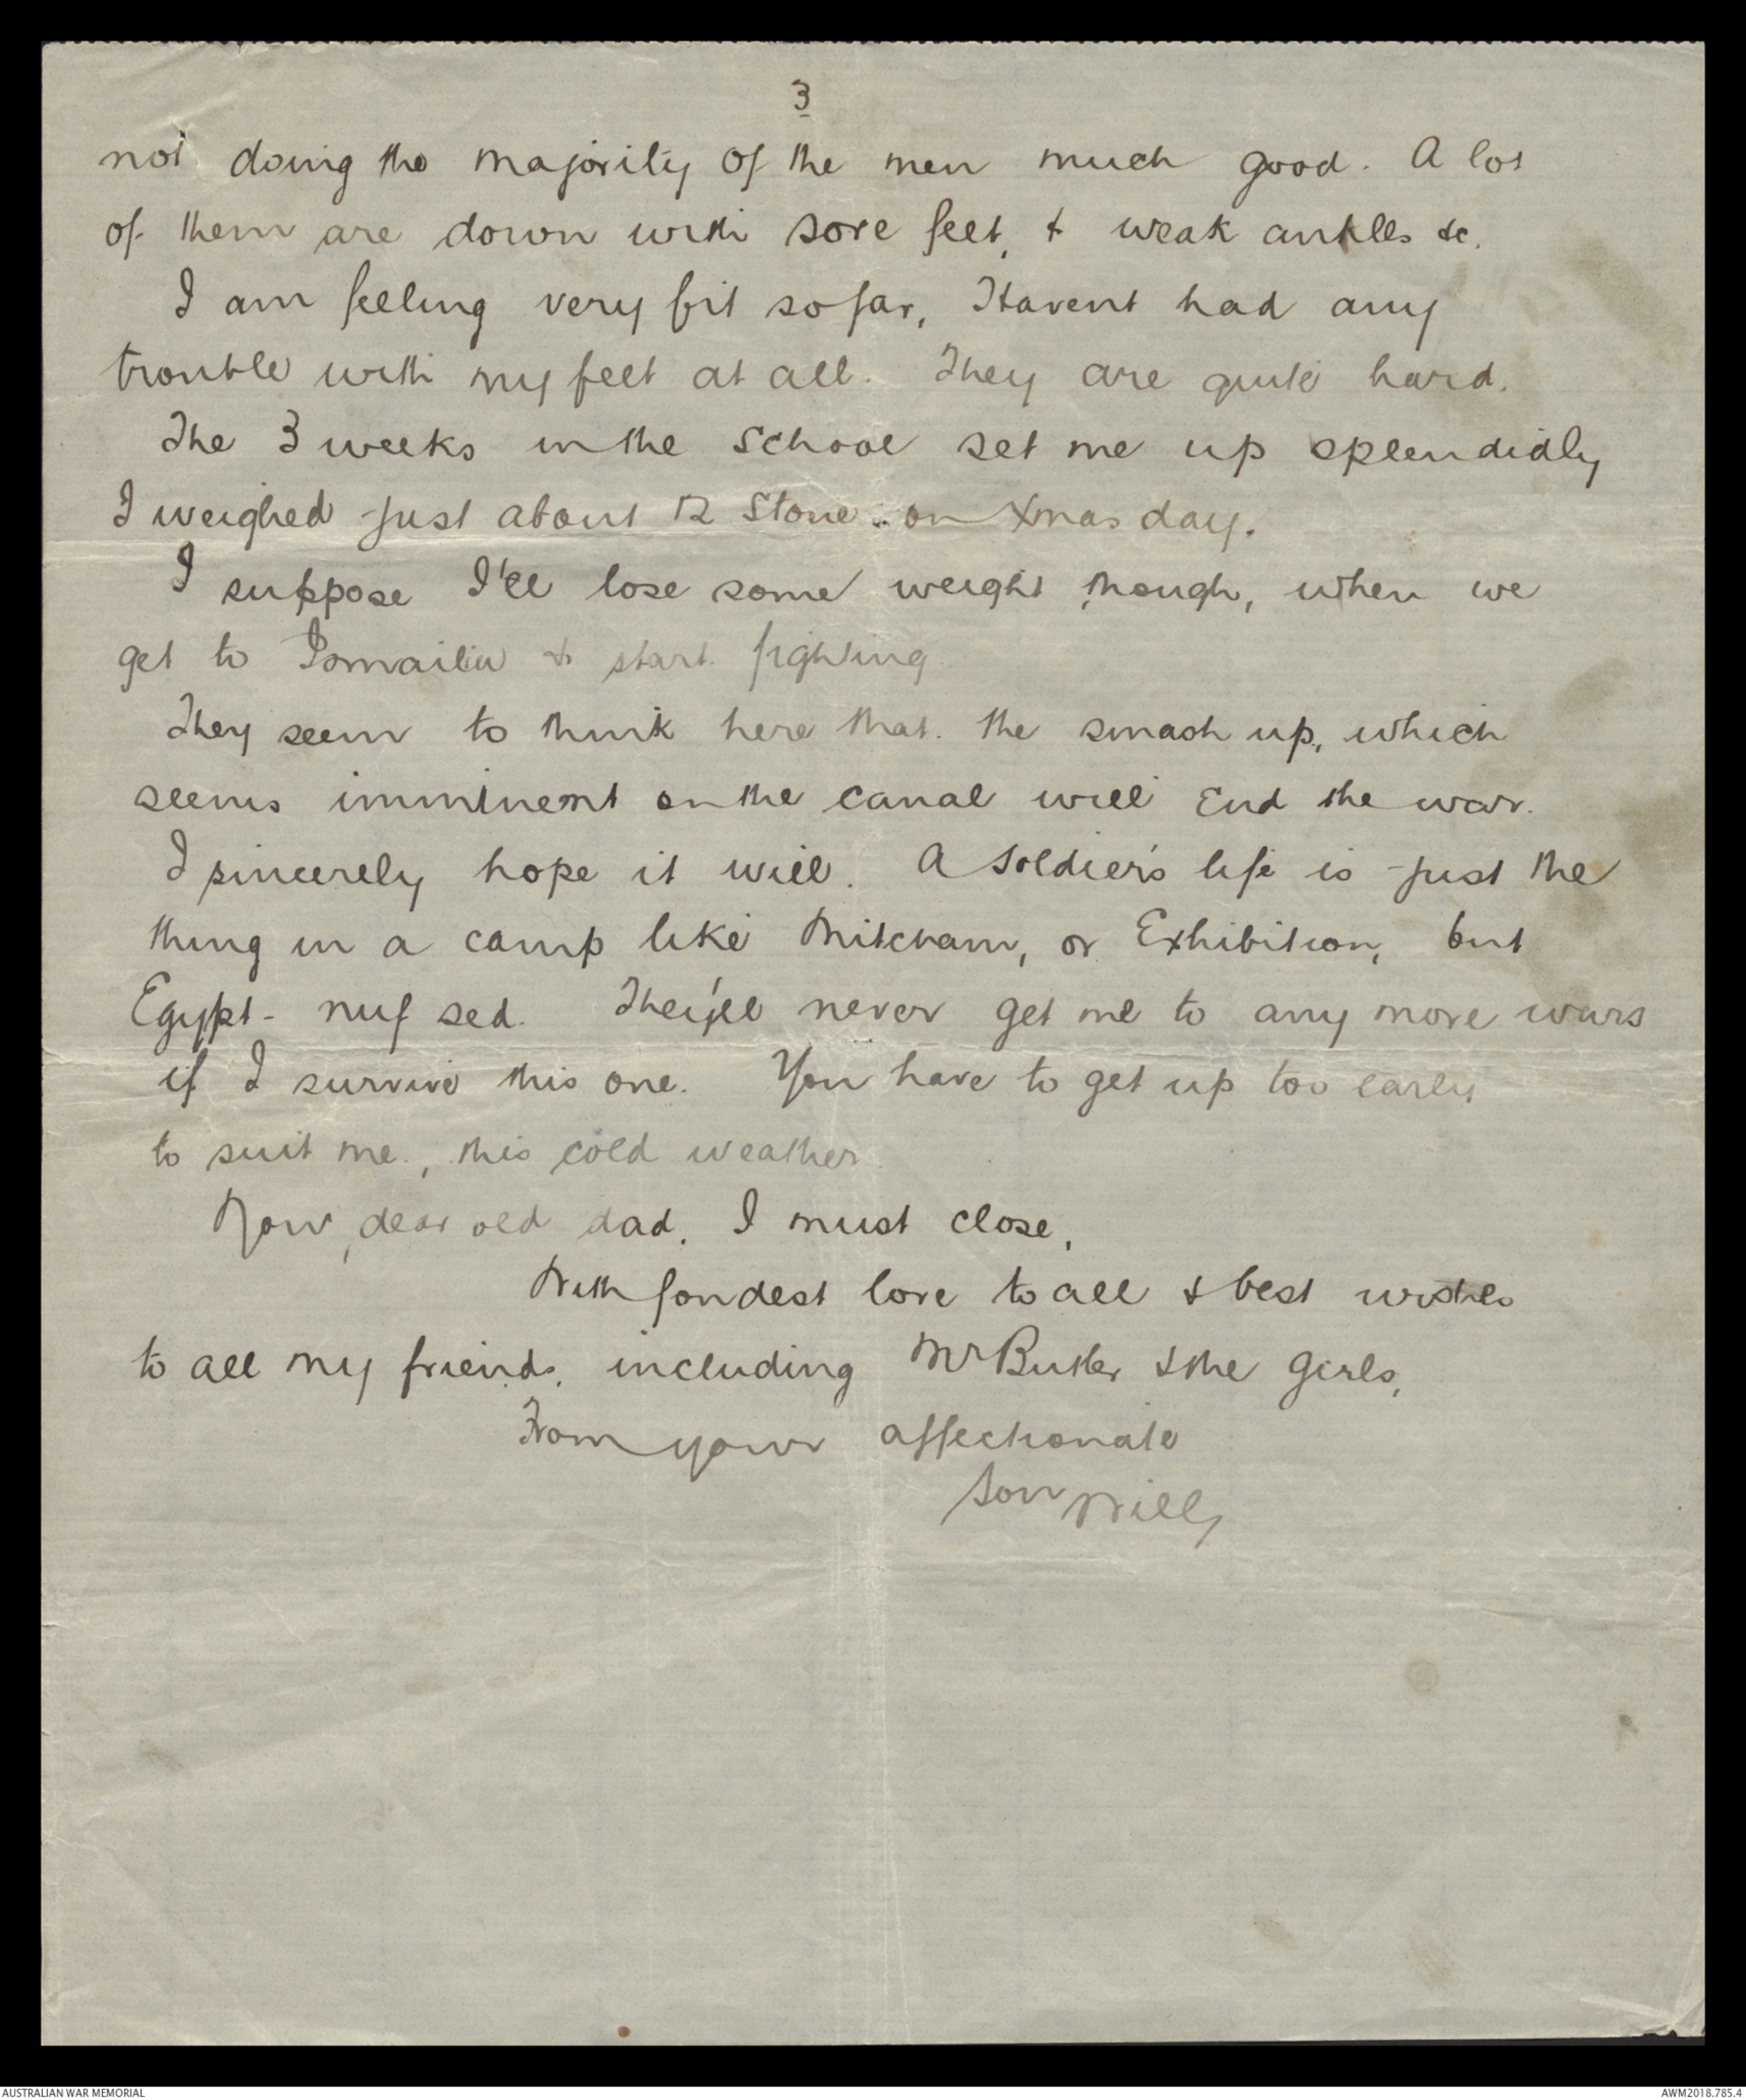 3
not doing the majority of the men much good. A lot
of them are down with sore feet, & weak ankles &c.
I am feeling very fit so far, Havent had any
trouble with my feet at all. They are quite hard.
The 3 weeks in the School set me up splendidly
I weighed just about 12 Stone on Xmas day.
I suppose I'll lose some weight though, when we
get to Ismailia & start fighting.
They seem to think here that the smash up, which
seems imminent on the canal will End the war.
I sincerely hope it will. A soldier's life is just the
thing in a camp like Mitcham, or Exhibition, but
Egypt - nuf sed. They'll never get me to any more wars
if I survive this one. You have to get up too early
to suit me, this cold weather.
Now, dear old dad, I must close,
With fondest love to all & best wishes
to all my friends, including Mr Butler & the Girls,
From your affectionate
Son Will
AUSTRALIAN WAR MEMORIAL
AWM2018.785.4